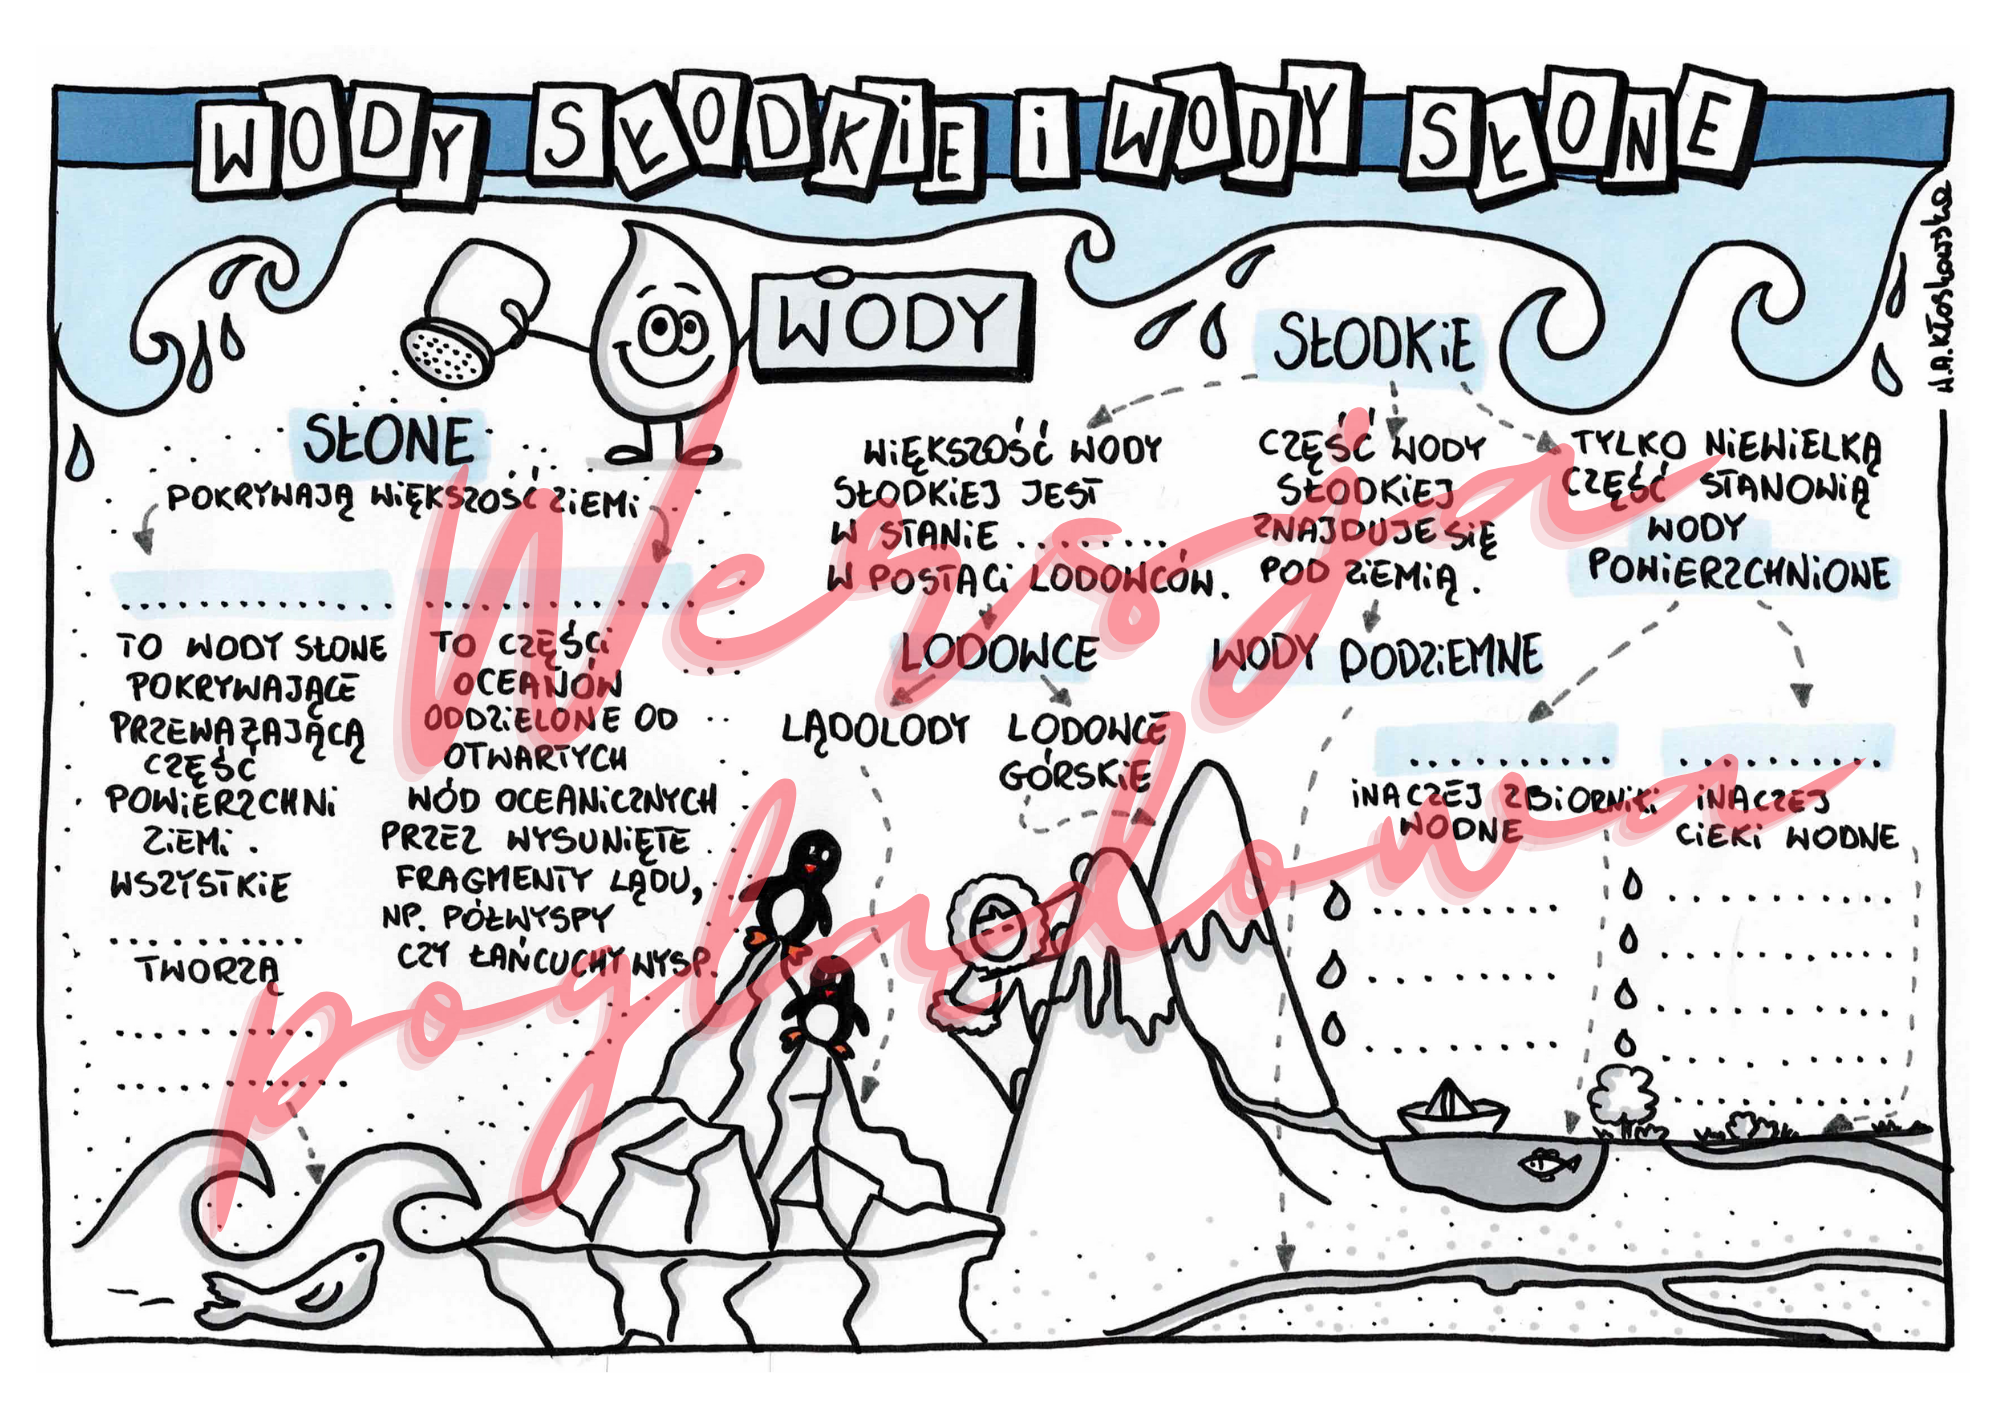 WODY SŁODKIE I WODY SŁONE
N.A.Kłoskowska
WODY
SŁONE
POKRYWAJĄ WIĘKSZOŚĆ ZIEMI
..............
TO WODY SŁONE
POKRYWAJĄCE
PRZEWAŻAJĄCĄ
CZĘŚĆ
POWIERZCHNI
ZIEMI.
WSZYSTKIE
...........
TWORZĄ
...........
.............
..............
TO CZĘŚCI
OCEANÓW
ODDZIELONE OD
OTWARTYCH
WÓD OCEANICZNYCH
PRZEZ WYSUNIĘTE
FRAGMENTY LĄDU,
NP. PÓŁWYSPY
CZY ŁAŃCUCHY WYSP.
SŁODKIE
WIĘKSZOŚĆ WODY
SŁODKIEJ JEST
W STANIE ........
W POSTACI LODOWCÓW.
LODOWCE
LĄDOLODY
LODOWCE
GÓRSKIE
CZĘŚĆ WODY
SŁODKIEJ
ZNAJDUJE SIĘ
POD ZIEMIĄ.
WODY PODZIEMNE
TYLKO NIEWIELKĄ
CZĘŚĆ STANOWIĄ
WODY
POWIERZCHNIONE
...........
INACZEJ ZBIORNIKI
WODNE
..........
..........
..........
...........
INACZEJ
CIEKI WODNE
...........
...........
...........
...........
...........
Wersja
poglądowa